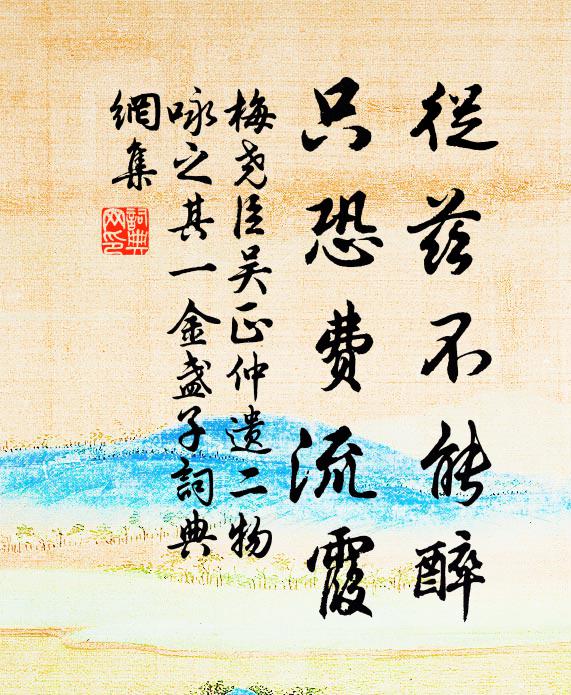 從茲不能醉
只恐費流霞
梅堯臣吳正仲遺二物
咏之其一金盞子詞典
網集
詞典
网印